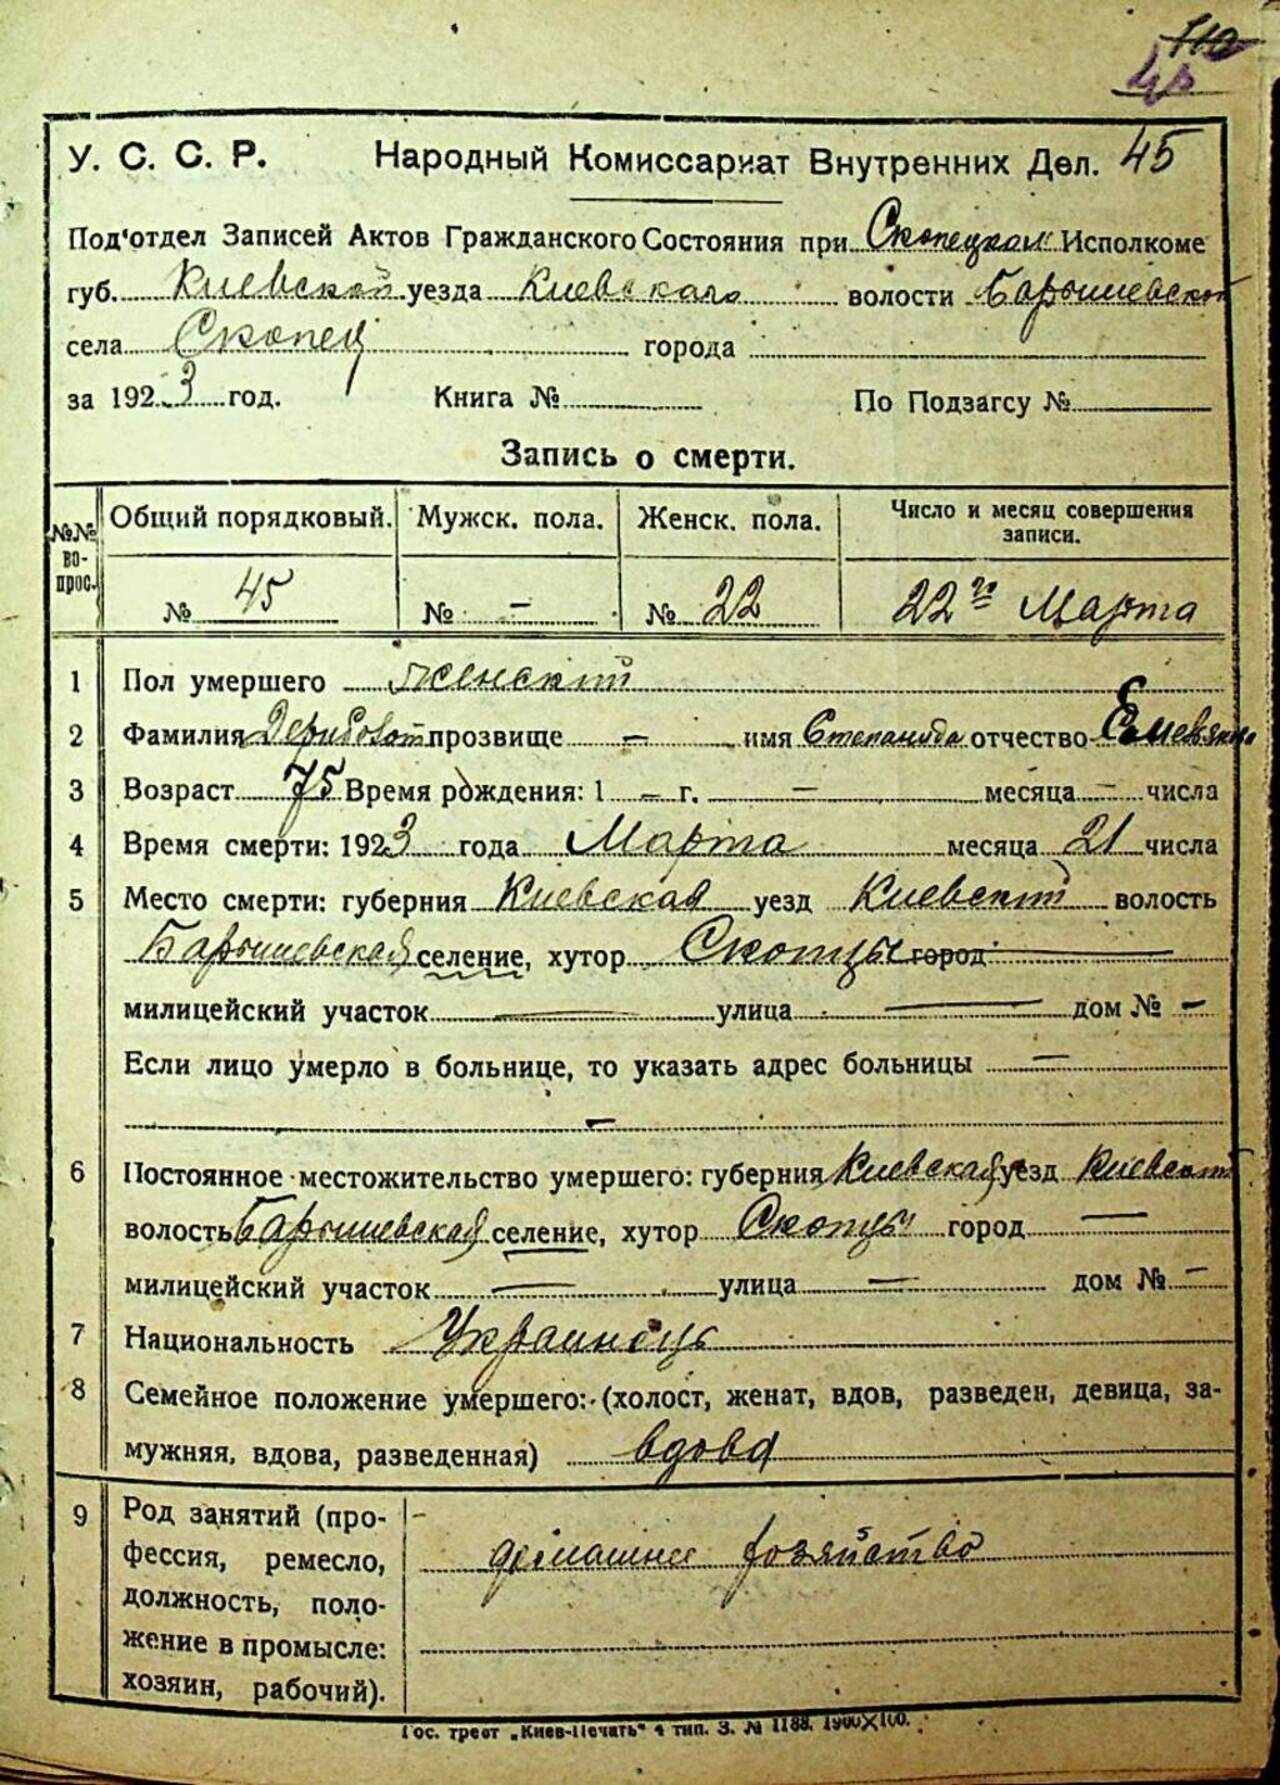 45
У. С. С. Р. Народный Комиссариат Внутренних Дел.
Под'отдел Записей Актов Гражданского Состояния при Скопецком Исполкоме
губ. Киевской уезда Киевскаго волости Барышевской
села Скопец города
за 1923 год. Книга № По Подзагсу №
Запись о смерти.
№№ во-прос. Общий порядковый. Мужск. пола. Женск. пола. Число и месяц совершения записи.
№ 45 № – № 22 22го Марта
1 Пол умершего женский
2 Фамилия прозвище – имя Степанида отчество
3 Возраст 75 Время рождения: 1 – г. – месяца – числа
4 Время смерти: 1923 года Марта месяца 21 числа
5 Место смерти: губерния Киевская уезд Киевский волость
Барышевская селение, хутор Скопцы город —
милицейский участок — улица — дом № –
Если лицо умерло в больнице, то указать адрес больницы —
–
6 Постоянное местожительство умершего: губерния Киевская уезд Киевский
волость Барышевская селение, хутор Скопцы город —
милицейский участок — улица — дом № –
7 Национальность Украинець
8 Семейное положение умершего: (холост, женат, вдов, разведен, девица, за-
мужняя, вдова, разведенная) вдова
9 Род занятий (про-
фессия, ремесло, домашнее хозяйство
должность, поло-
жение в промысле:
хозяин, рабочий).
Гос. трест „Киев-Печать" 4 тип. З. № 1188. 1900×100.